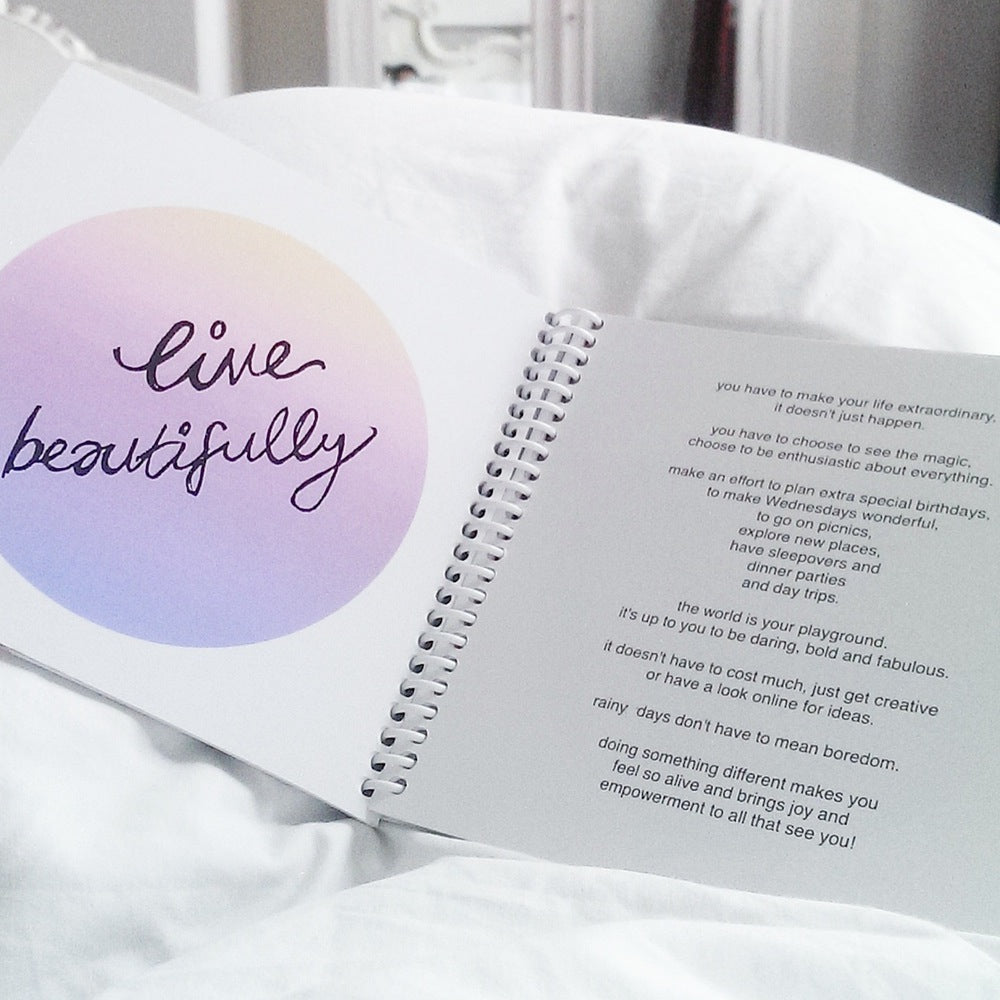 live
beautifully
you have to make your life extraordinary.
it doesn't just happen.
you have to choose to see the magic,
choose to be enthusiastic about everything.
make an effort to plan extra special birthdays,
to make Wednesdays wonderful,
to go on picnics,
explore new places,
have sleepovers and
dinner parties
and day trips.
the world is your playground.
it's up to you to be daring, bold and fabulous.
it doesn't have to cost much, just get creative
or have a look online for ideas.
rainy days don't have to mean boredom.
doing something different makes you
feel so alive and brings joy and
empowerment to all that see you!